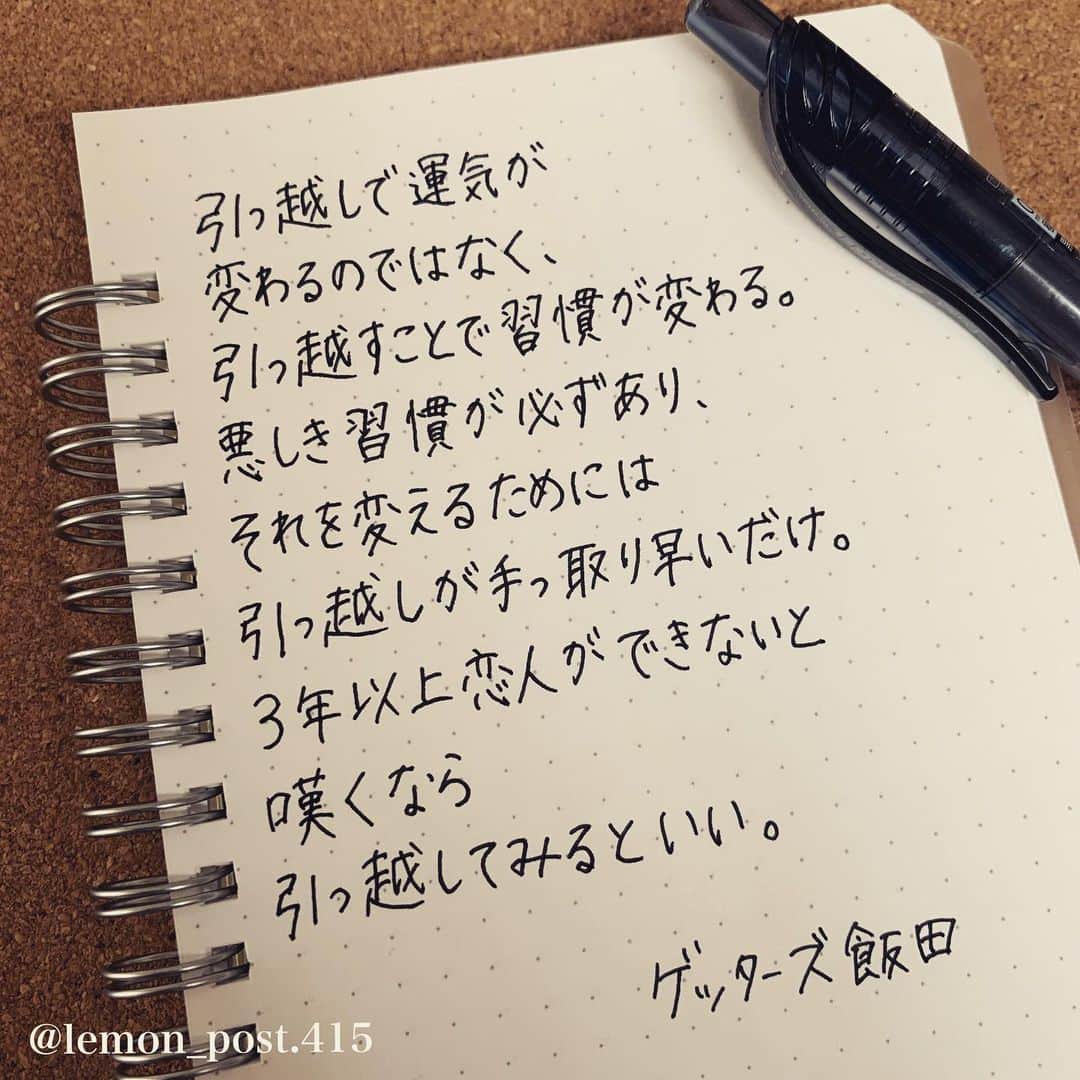 引っ越しで運気が
変わるのではなく、
引っ越すことで習慣が変わる。
悪しき習慣が必ずあり、
それを変えるためには
引っ越しが手っ取り早いだけ。
3年以上恋人ができないと
嘆くなら
引っ越してみるといい。
ゲッターズ飯田
@lemon_post.415